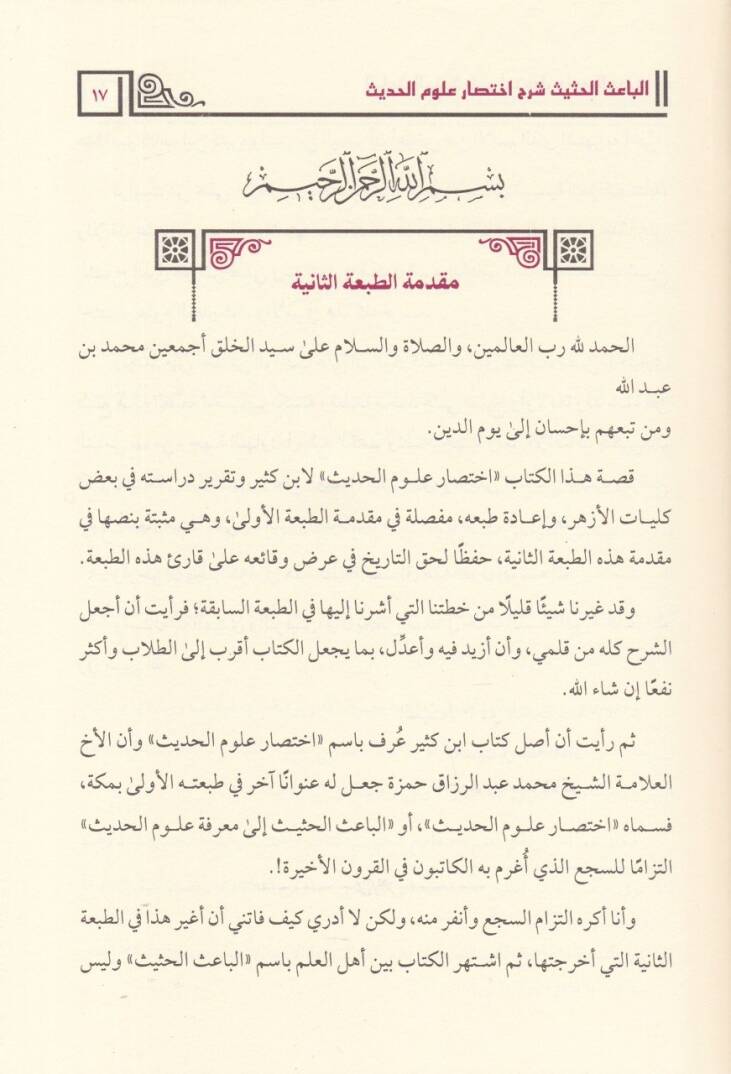 الباعث الحثيث شرح اختصار علوم الحديث
١٧
بسم الله الرحمن الرحيم
مقدمة الطبعة الثانية
الحمد لله رب العالمين، والصلاة والسلام علىٰ سيد الخلق أجمعين محمد بن
عبـد الله
ومن تبعهم بإحسان إلىٰ يوم الدين.
قصـة هـذا الكتاب «اختصار علـوم الحديث» لابن كثير وتقرير دراسـته في بعض
كليات الأزهر، وإعـادة طبعه، مفصلة في مقدمـة الطبعة الأولىٰ، وهـي مثبتة بنصها في
مقدمة هذه الطبعة الثانية، حفظًا لحق التاريخ في عرض وقائعه علىٰ قارئ هذه الطبعة.
وقد غيرنا شيئًا قليلًا من خطتنا التي أشرنا إليها في الطبعة السابقة؛ فرأيت أن أجعل
الشرح كله من قلمي، وأن أزيد فيه وأعدِّل، بما يجعل الكتاب أقرب إلىٰ الطلاب وأكثر
نفعًا إن شاء الله.
ثم رأيت أن أصل كتاب ابن كثير عُرف باسم «اختصار علوم الحديث» وأن الأخ
العلامـة الشـيخ محمد عبد الرزاق حمزة جعـل له عنوانًا آخر في طبعتـه الأولىٰ بمكة،
فسماه «اختصـار علوم الحديـث»، أو «الباعث الحثيـث إلىٰ معرفة علـوم الحديث»
التزامًا للسجع الذي أُغرم به الكاتبون في القرون الأخيرة!.
وأنا أكره التزام السجع وأنفر منه، ولكن لا أدري كيف فاتني أن أغير هذا في الطبعة
الثانية التي أخرجتها، ثم اشـتهر الكتاب بين أهل العلم باسم «الباعث الحثيث» وليس